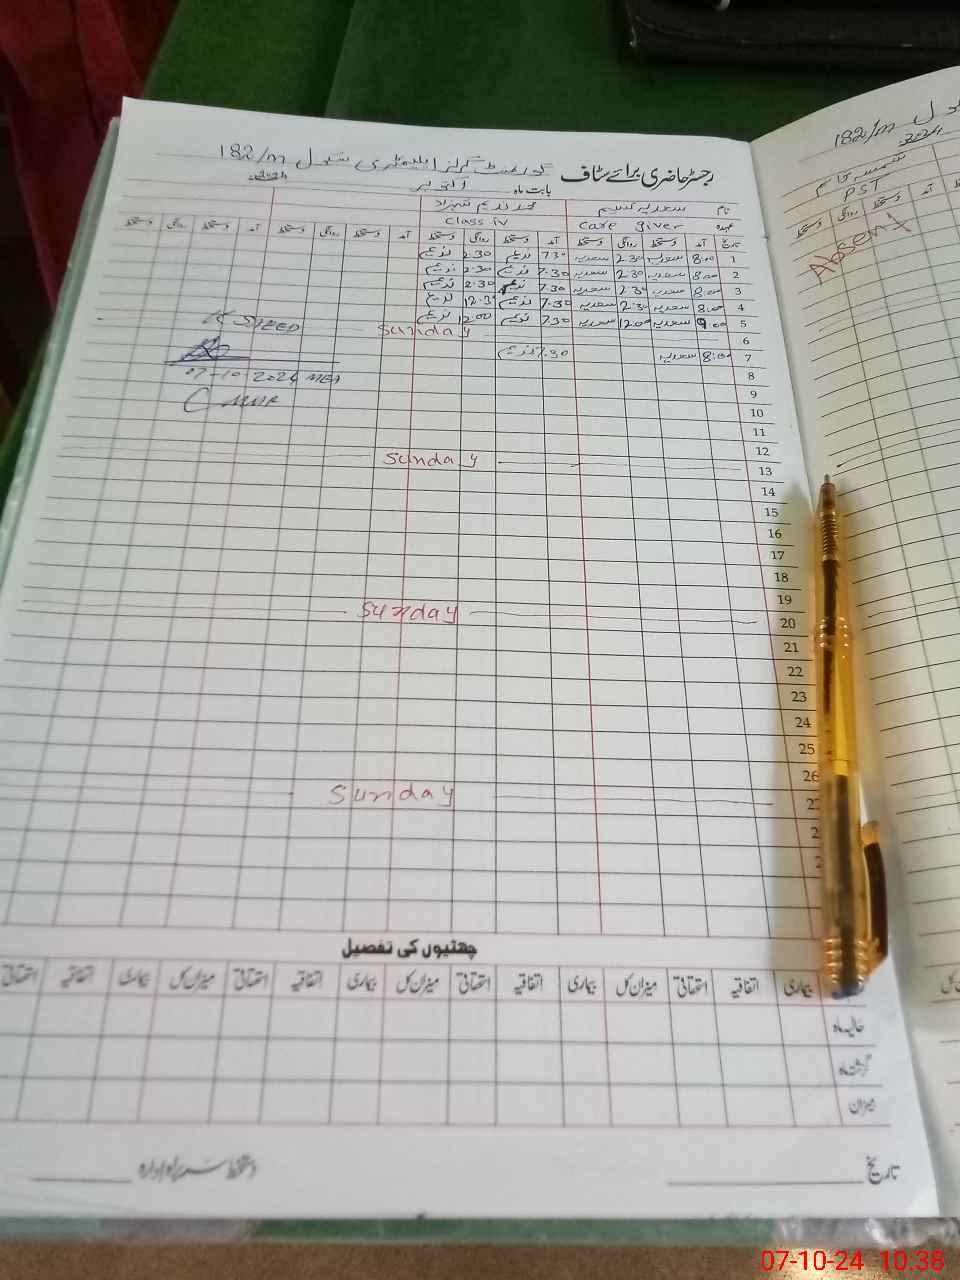 رجسٹر حاضری برائے سٹاف گورنمنٹ گرلز ایلیمنٹری سکول 182/m
بابت ماہ اکتوبر 2024
نام سعدیہ نسیم محمد ندیم شہزاد
عہدہ care giver class iv
تاریخ آمد دستخط روانگی دستخط آمد دستخط روانگی دستخط آمد دستخط روانگی دستخط آمد دستخط روانگی دستخط
1 8:00 سعدیہ 2:30 سعدیہ 7:30 ندیم 2:30 ندیم
2 8:00 سعدیہ 2:30 سعدیہ 7:30 ندیم 2:30 ندیم
3 8:00 سعدیہ 2:30 سعدیہ 7:30 ندیم 2:30 ندیم
4 8:00 سعدیہ 2:30 سعدیہ 7:30 ندیم 12:30 ندیم
5 9:00 سعدیہ 12:00 سعدیہ 7:30 ندیم 12:00 ندیم
6 Sunday
7 8:00 سعدیہ 7:30 ندیم
07-10-2024 MEA
8
9
10
11
12
13 Sunday
14
15
16
17
18
19
20 Sunday
21
22
23
24
25
26
27 Sunday
چھٹیوں کی تفصیل
بیماری اتفاقیہ استحقاقی میزان کل بیماری اتفاقیہ استحقاقی میزان کل بیماری اتفاقیہ استحقاقی میزان کل بیماری اتفاقیہ استحقاقی
حالیہ ماہ
گزشتہ ماہ
میزان
تاریخ
دستخط سربراہ ادارہ
182/m
2024
PST
دستخط روانگی دستخط آمد
Absent
07-10-24 10:38